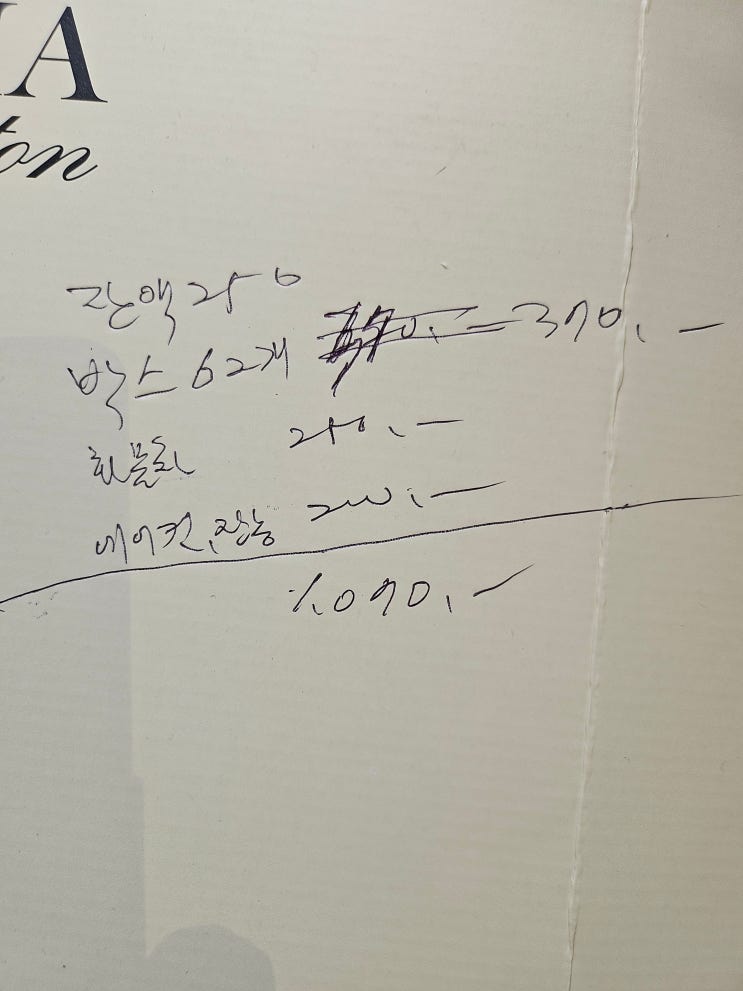 A
on
잔액 250
박스 62개 = 370.-
250.-
에어컨, 장농 200.-
1,070.-